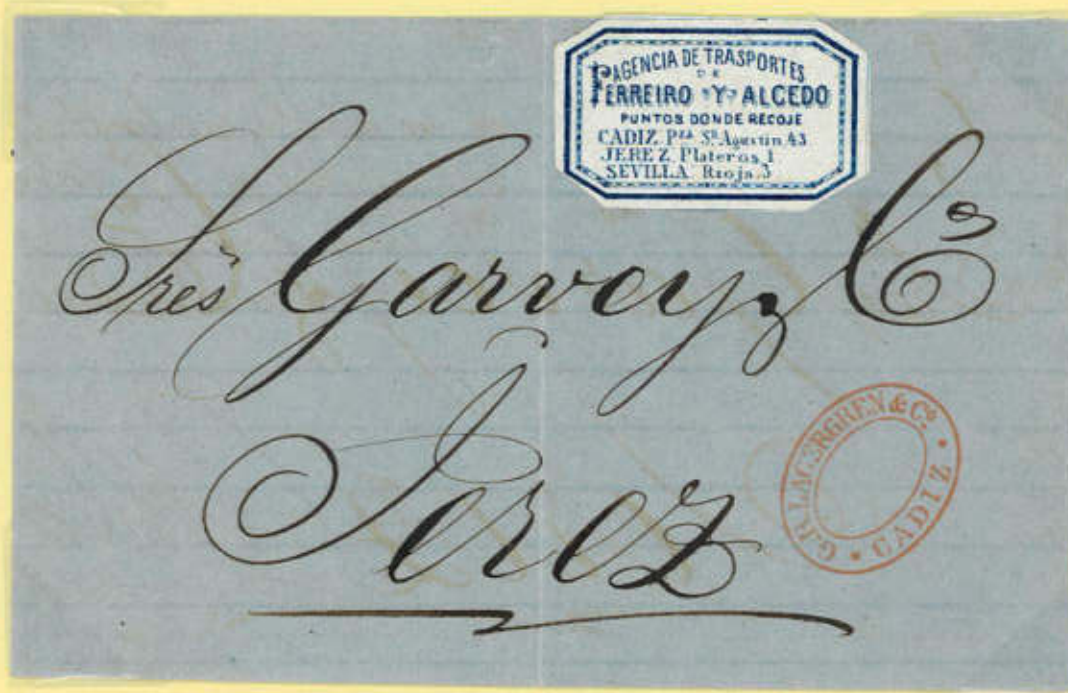 AGENCIA DE TRASPORTES
DE
FERREIRO Y ALCEDO
PUNTOS DONDE RECOJE
CADIZ Pza. Sn. Agustin 43
JEREZ Plateros 1
SEVILLA Rioja 3
Sres Garvey y Ca
Jerez
G. R. LACERGREN & Co.
CADIZ